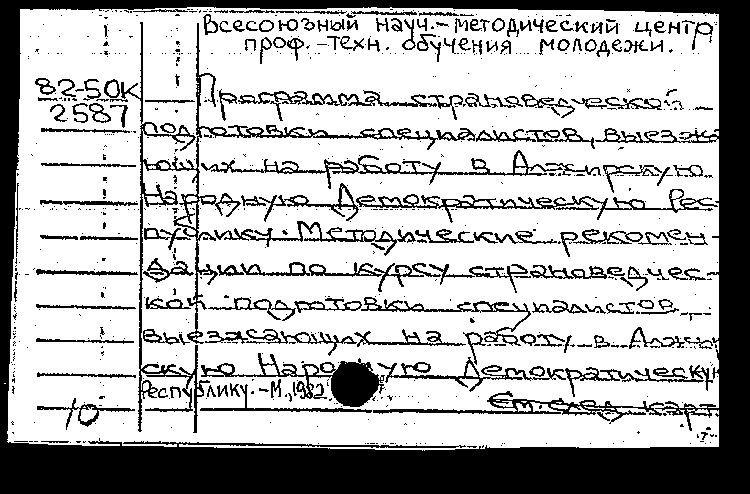 Всесоюзный науч.-методический центр
проф.-техн. обучения молодежи.
82-50К
2587
Программа страноведческой
подготовки специалистов, выезжа
ющих на работу в Алжирскую
Народную Демократическую Рес-
публику. Методические рекомен-
дации по курсу страноведчес-
кой подготовки специалистов,
выезжающих на работу в Алжир
скую Народную Демократическую
Республику. -М., 1982
См. след. карт.
10